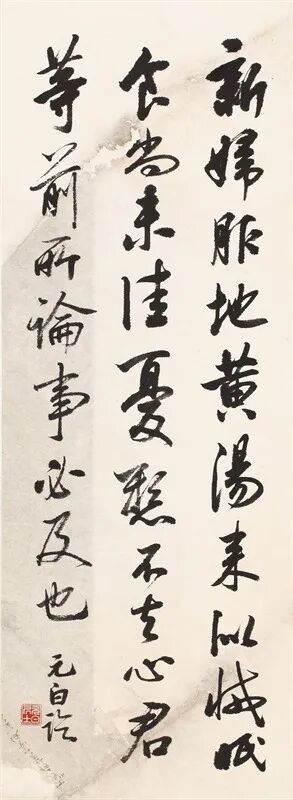 新婦服地黄湯来似減眠
食尚未佳憂懸不去心君
等前所論事必及也
元白臨